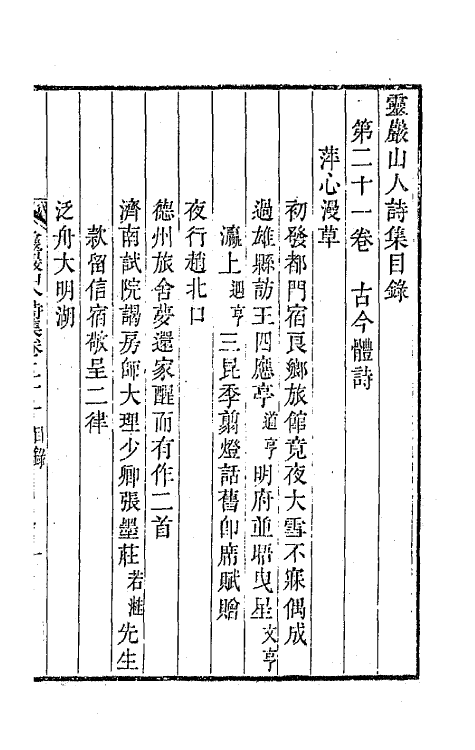 靈巖山人詩集目錄
第二十一卷 古今體詩
萍心漫草
初發都門宿良鄉旅館竟夜大雪不寐偶成
過雄縣訪王四應亭道亨明府並晤曳星文亨
瀛上遇亨三昆季翦燈話舊卽席賦贈
夜行趙北口
德州旅舍夢還家醒而有作二首
濟南試院謁房師大理少卿張墨莊若溎先生
款留信宿敬呈二律
泛舟大明湖